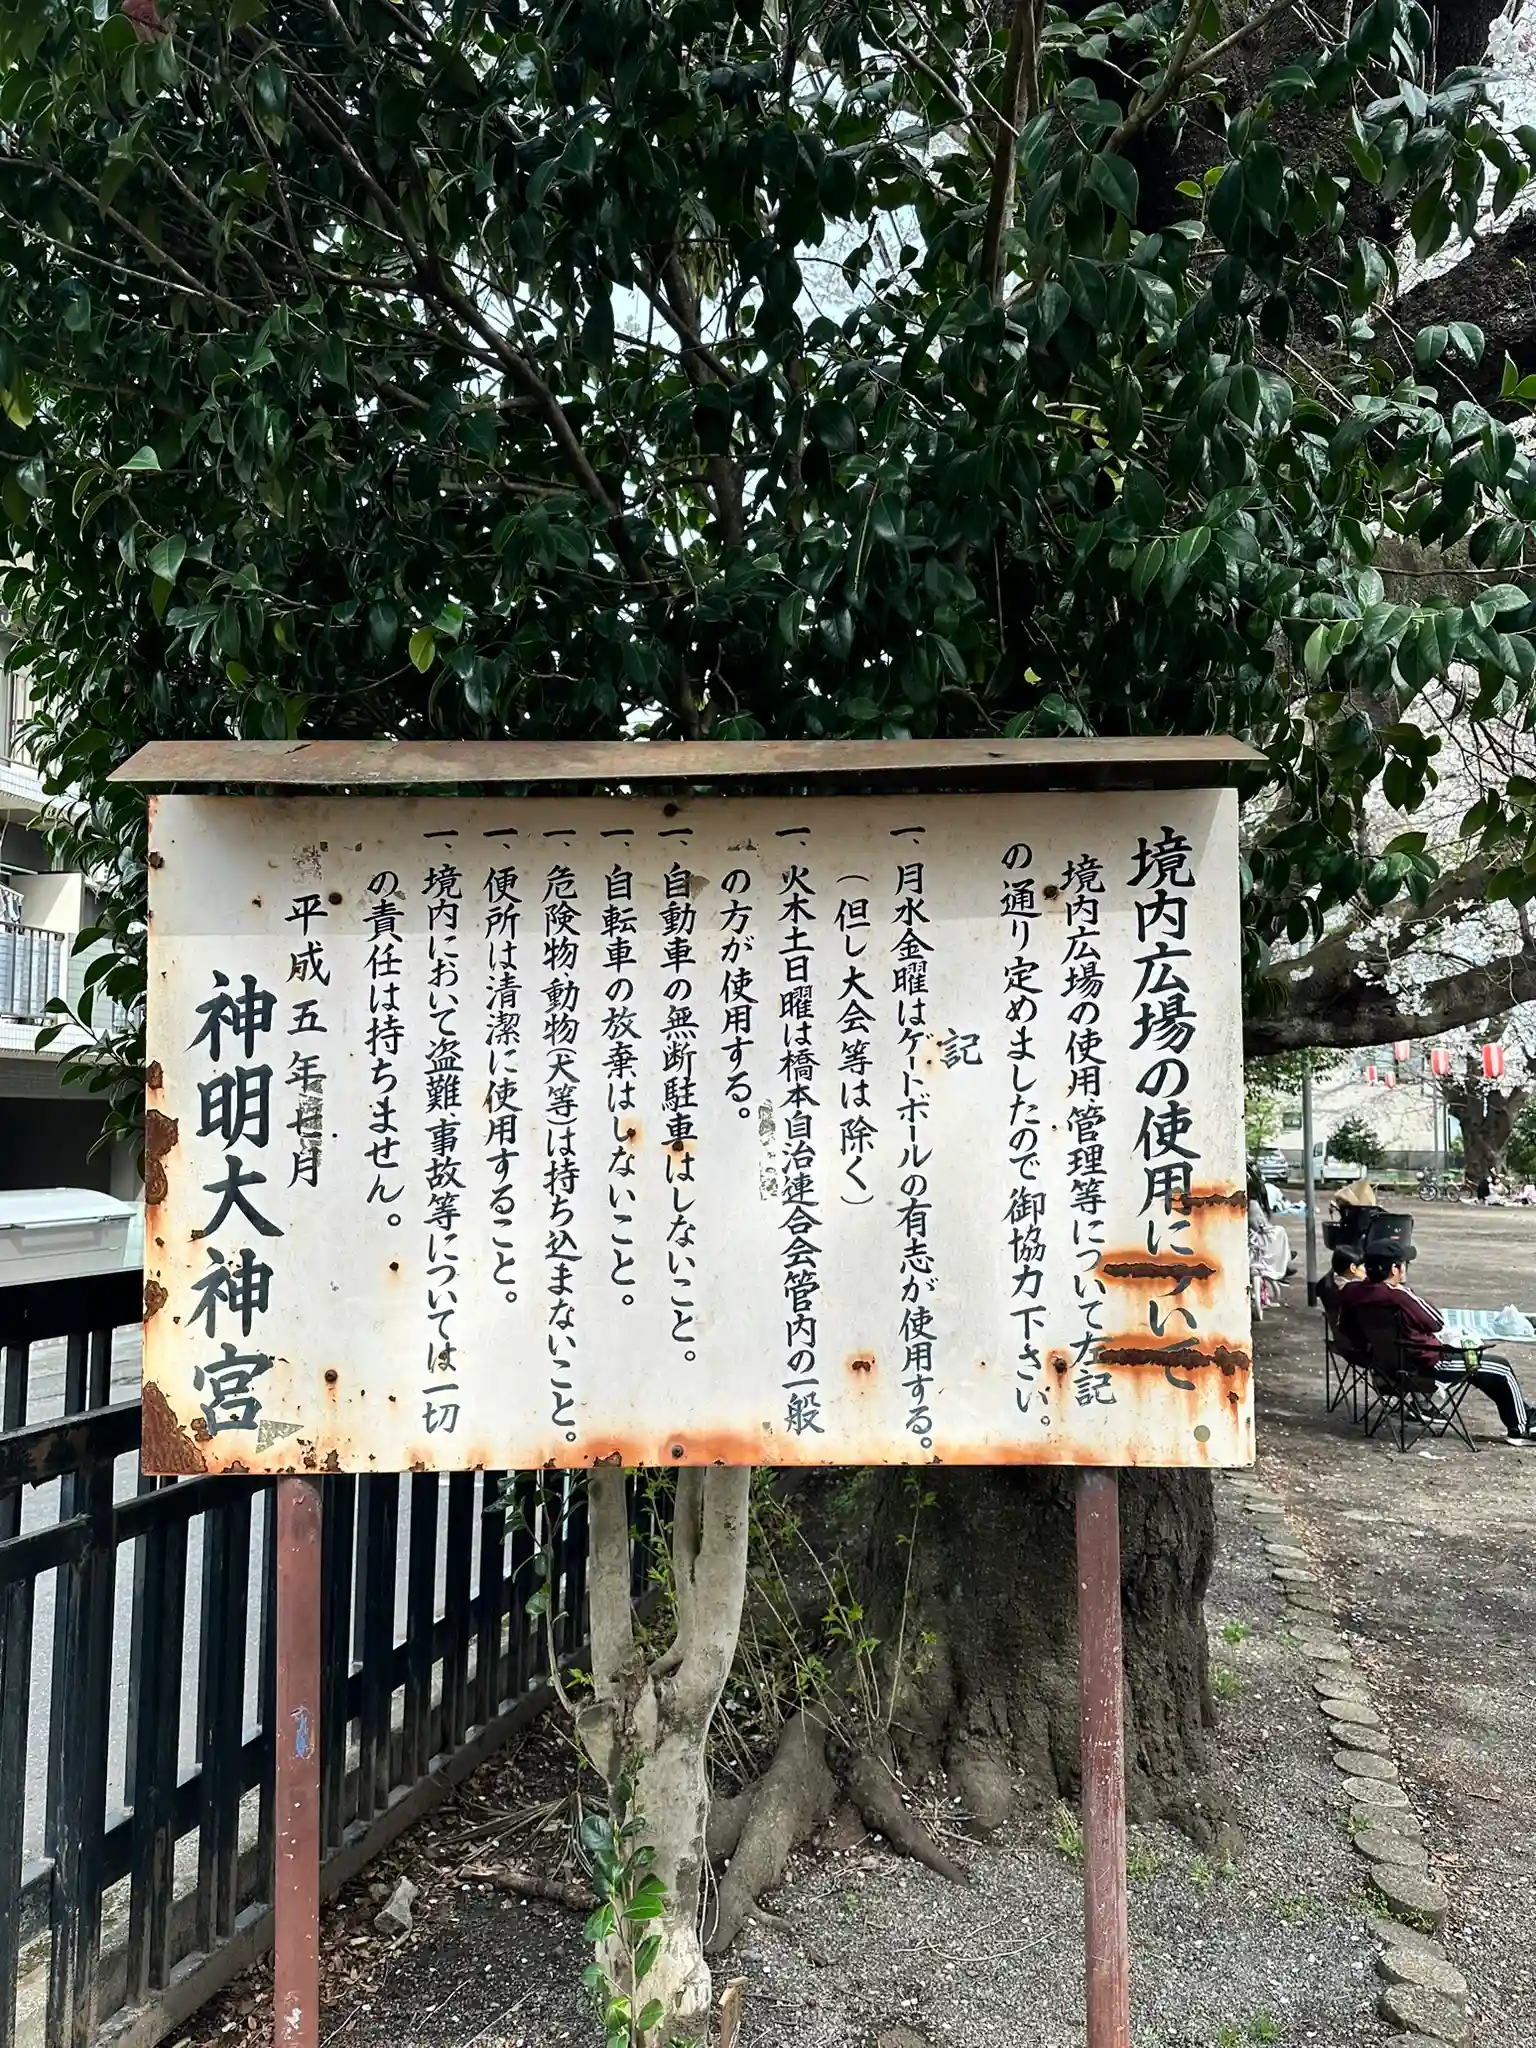 境内広場の使用について
境内広場の使用管理等について左記
の通り定めましたので御協力下さい。
記
一、月水金曜はゲートボールの有志が使用する。
（但し大会等は除く）
一、火木土日曜は橋本自治連合会管内の一般
の方が使用する。
一、自動車の無断駐車はしないこと。
一、自転車の放棄はしないこと。
一、危険物・動物（犬等）は持ち込まないこと。
一、便所は清潔に使用すること。
一、境内において盗難、事故等については一切
の責任は持ちません。
平成五年七月
神明大神宮